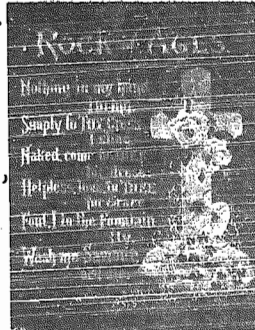 ROCK of AGES
Nothing in my hand
I bring,
Simply to Thy Cross
I cling;
Naked, come to Thee
Helpless, look to Thee
for Grace
Foul, I to the Fountain
fly,
Wash me, Saviour